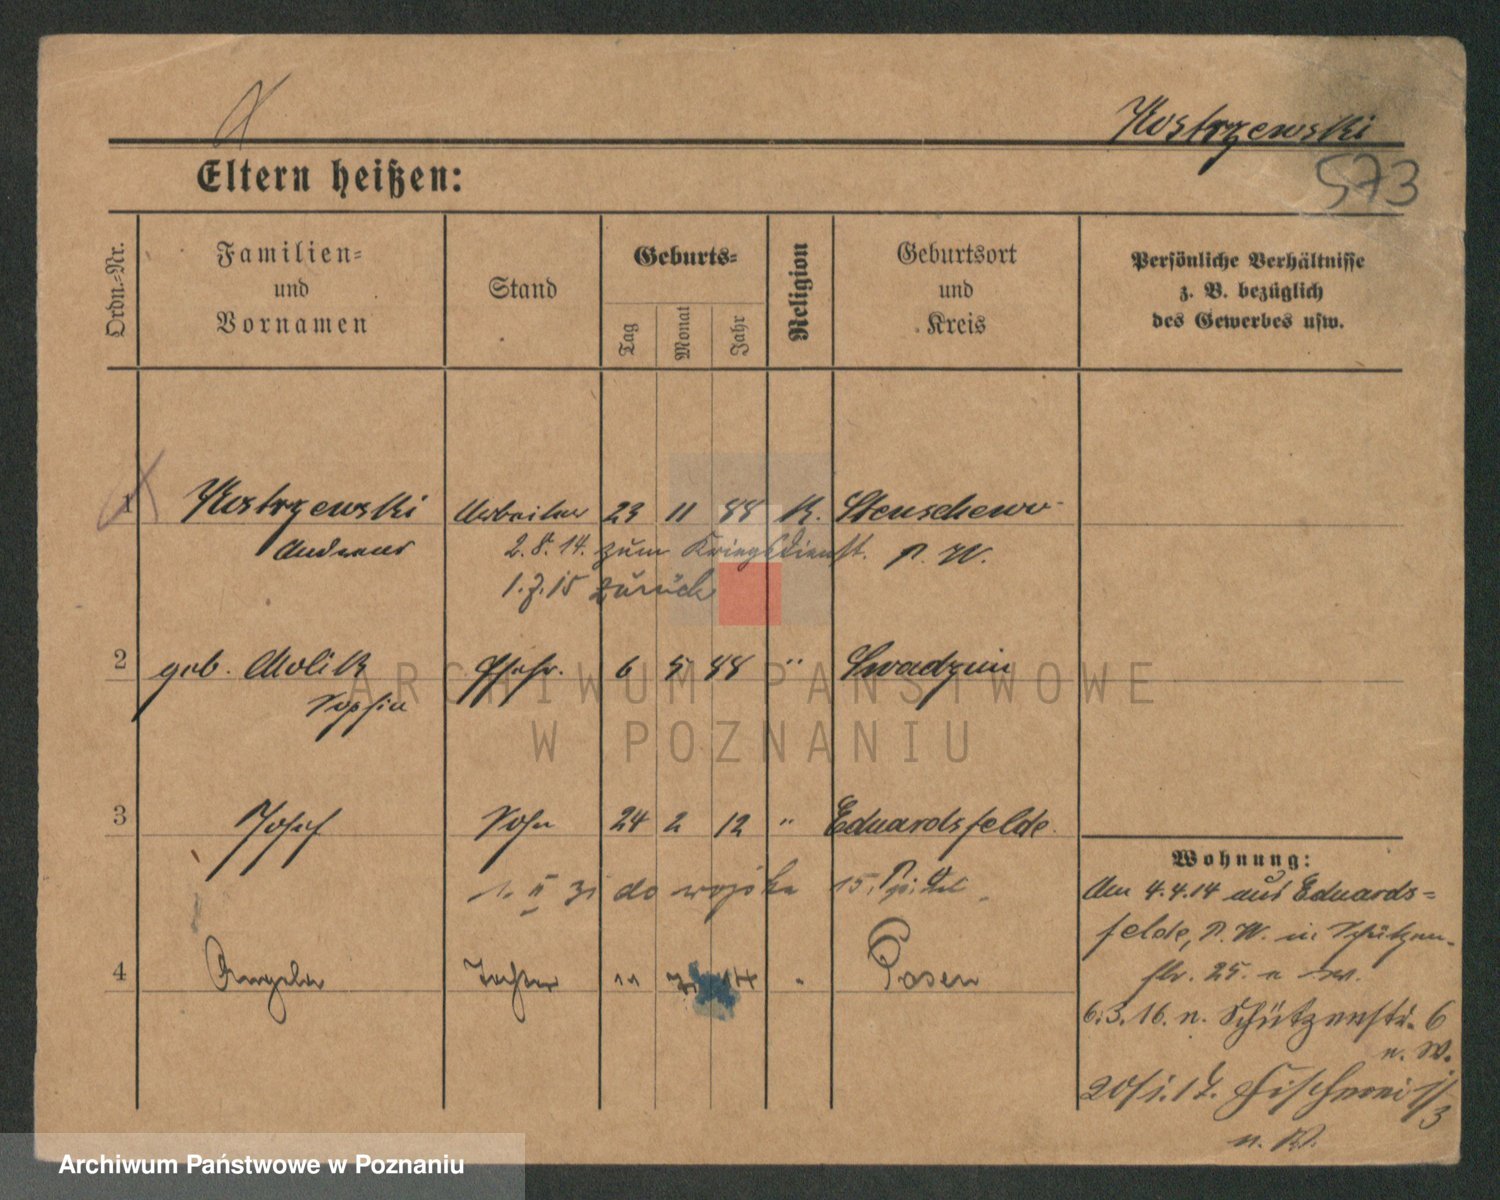 Kostrzewski
573
Eltern heißen:
Ordn.-Nr.
Familien-
und
Vornamen
Stand
Geburts-
Tag
Monat
Jahr
Religion
Geburtsort
und
Kreis
Persönliche Verhältnisse
z. B. bezüglich
des Gewerbes usw.
1 Kostrzewski Arbeiter 23 11 88 K. Stenschewo
Andreas 2.8.14. zum Kriegsdienst. P. W.
1.7.15 zurück
2 geb. Molik Ehefr. 6 5 88 " Swadzim
Sophia
3 Josef Sohn 24 2 12 " Eduardsfelde.
1. II 31 do wojska 15.
4 Angela Tochter 11 7. 14 " Posen
Wohnung:
Am 4.4.14 aus Eduards=
felde, P. W. in Schützen-
str. 25. n. W.
6.3.16. n. Schützenstr. 6
n. W.
20/1.17. Fischerei 1/3
n. W.
ARCHIWUM PAŃSTWOWE
W POZNANIU
Archiwum Państwowe w Poznaniu